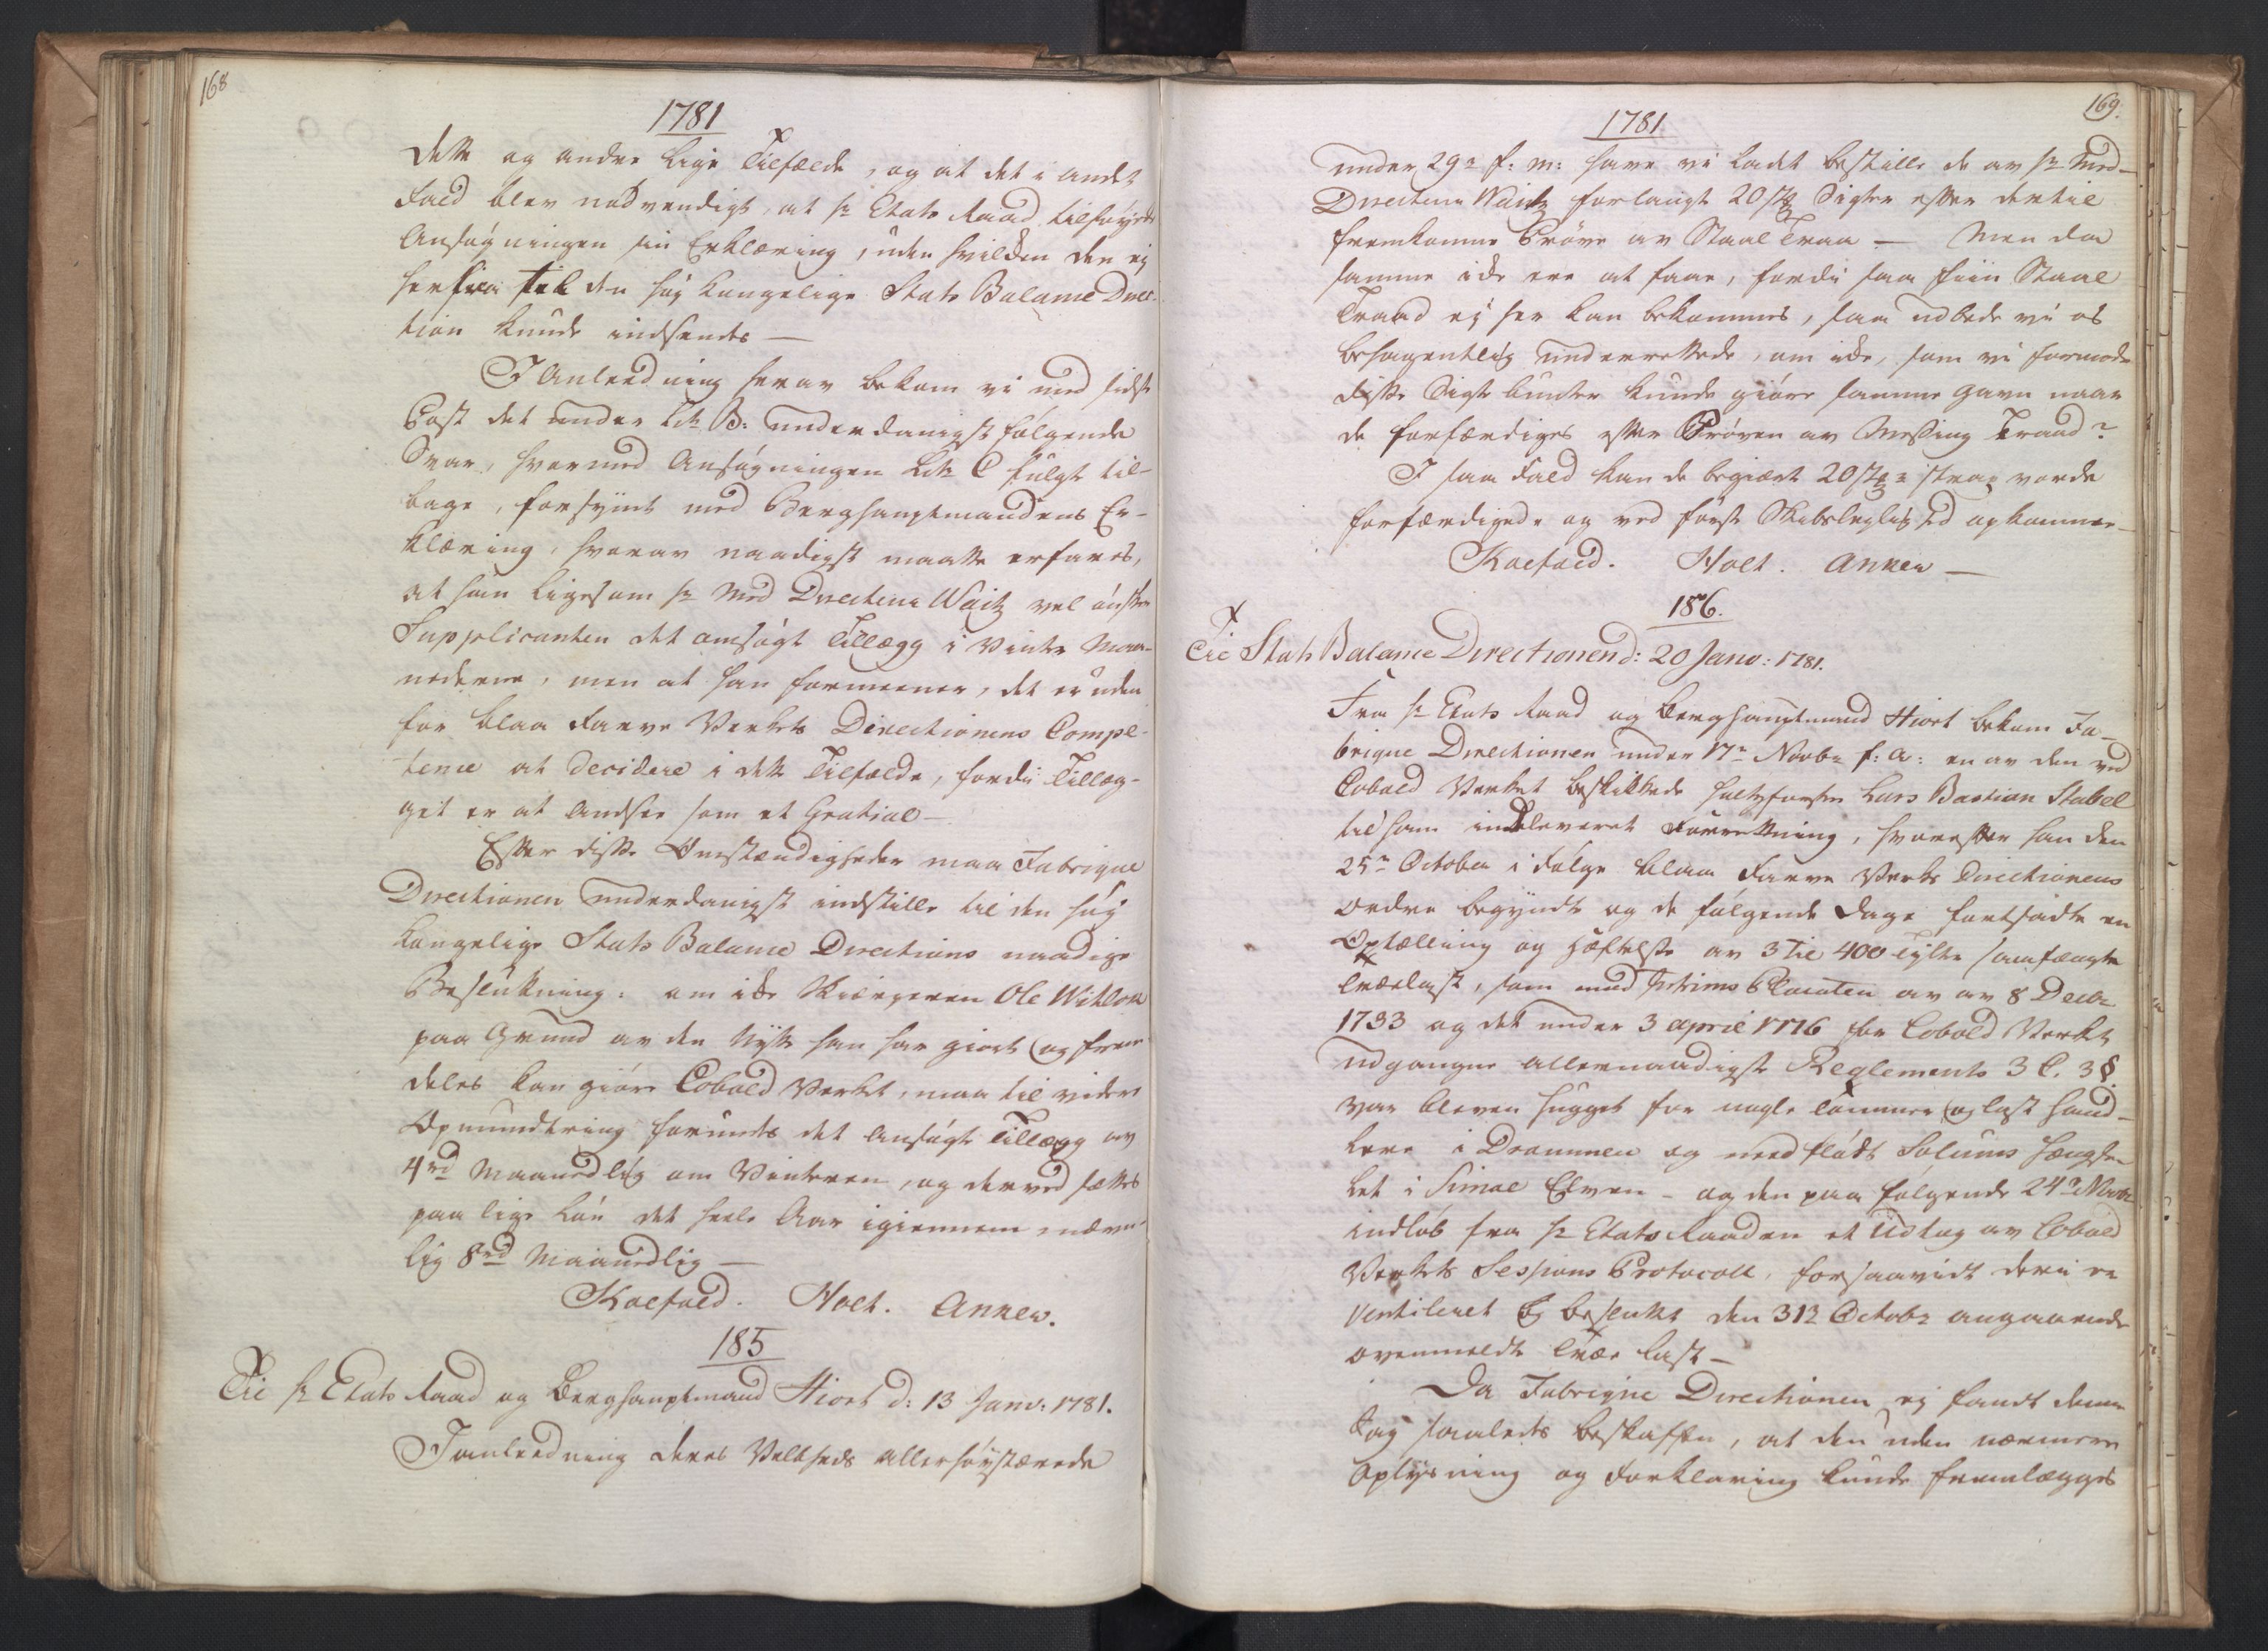 168
1781
dette og andre lige Tilfælde, og at det i andet
Fald blev nødvendigt, at Hr Etats Raad tilføyede
Ansøgningen sin Erklæring, uden hvilken den ej
herfra til den høy Kongelige Stats Balance Direc-
tion kunde indsendes —
I Anledning herav bekom vi med sidste
Post det under Litr B: underdanigst følgende
Svar, hvormed Ansøgningen Litr C fulgte til-
bage, forsynt med Berghauptmandens Er-
klæring, hvorav naadigst maatte erfares,
at han ligesom Hr Med Directeur Waitz vel ønsker
Supplicanten det ansøgte Tillæg i Vinter Maa-
nederne, men at han formeener, det er uden
for blaa Farve Verkets Directionens Compe-
tence at decidere i dette Tilfælde, fordi Tillæg-
get er at ansee som et Gratial —
Efter disse Omstændigheder maa Fabrique
Directionen underdanigst indstille til den høy
Kongelige Stats Balance Directions naadige
Beslutning: om ikke Skiærperen Ole Withlou
paa Grund av den Nytte han har giort (og frem-
deles kan giøre Cobold Verket, maa til videre
Opmuntring forundes det ansøgte Tillæg av
4 rd Maanedlig om Vinteren, og derved sættes
paa lige Løn det heele Aar igiennem, nem-
lig 8 rd Maanedlig —
Koefoed. Holt. Anker.
185
Til Hr Etats Raad og Berghauptmand Hiort d: 13 Janv: 1781.
I anledning deres Velbyrdigheds allerhøystærede
169.
1781
under 29de f: m: have vi ladet bestille de av Hr Med-
Directeur Waitz forlangte 20 Stk Sigter efter dertil
fremkomne Prøve av Staal Traad — Men da
samme ikke ere at faae, fordi saa fiin Staal
Traad ej her kan bekommes, saa udbede vi os
behagentlig underrettede, om ikke, som vi formode
disse Sigte bunder kunde giøre samme Gavn naar
de forfærdiges efter Prøven av Messing Traad?
I saa Fald kan de begiærte 20 Stk strax vorde
forfærdigede og ved første Skibsleylighed opkomme —
Koefoed. Holt. Anker —
186.
Til Stats Balance Directionen d: 20 Janv: 1781.
Fra Hr Etats Raad og Berghauptmand Hiort bekom Fa-
brique Directionen under 17de Novbr f: A: en av den ved
Cobold Verket beskikkede Holtzførster Lars Bastian Stabel
til ham indleveret Forretning, hvorefter han den
25de October i følge blaa Farve Verks Directionens
Ordre begyndte og de følgende Dage fortsatte en
Optælling og Hæftelse av 3 til 400 Tylter saakaldte
Trælast, som mod Placaten av av 8 Decbr
1733 og det under 3 April 1776 for Cobold Verket
udgangne allernaadigste Reglements 3 C. 3 §
var bleven hugget for nogle Tømmer (og last Hand-
lere i Drammen og need flødt Solums Hængse-
let i Simoe Elven — og den paa følgende 24de Novbr
indløb fra Hr Etats Raaden et Udtog av Cobold
Verkets Sessions Protocoll, forsaavidt deri er
Ventileret og besluttet den 31te Octobr angaaende
ovenmeldte Træe last —
Da Fabrique Directionen ej fandt denne
Sag saaledes beskaffen, at den uden nærmere
Oplysning og Forklaring kunde fremlægges